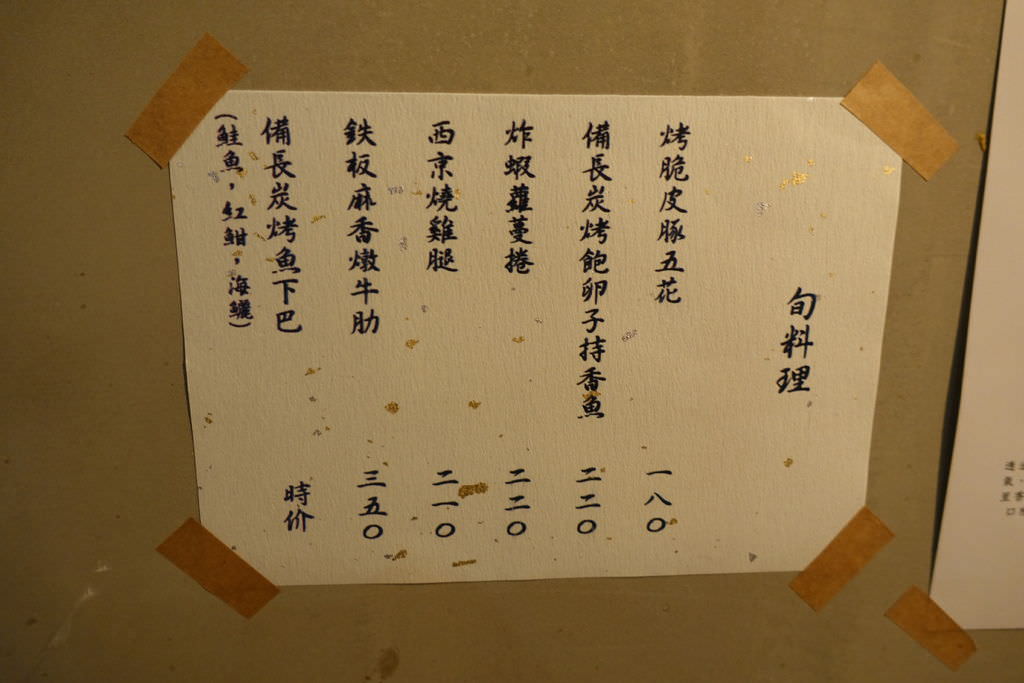 旬料理
烤脆皮豚五花 一八〇
備長炭烤飽卵子持香魚 二二〇
炸蝦蘿蔓捲 二二〇
西京燒雞腿 二一〇
鉄板麻香燉牛肋 三五〇
備長炭烤魚下巴 時价
(鮭魚,紅魽,海鱺)